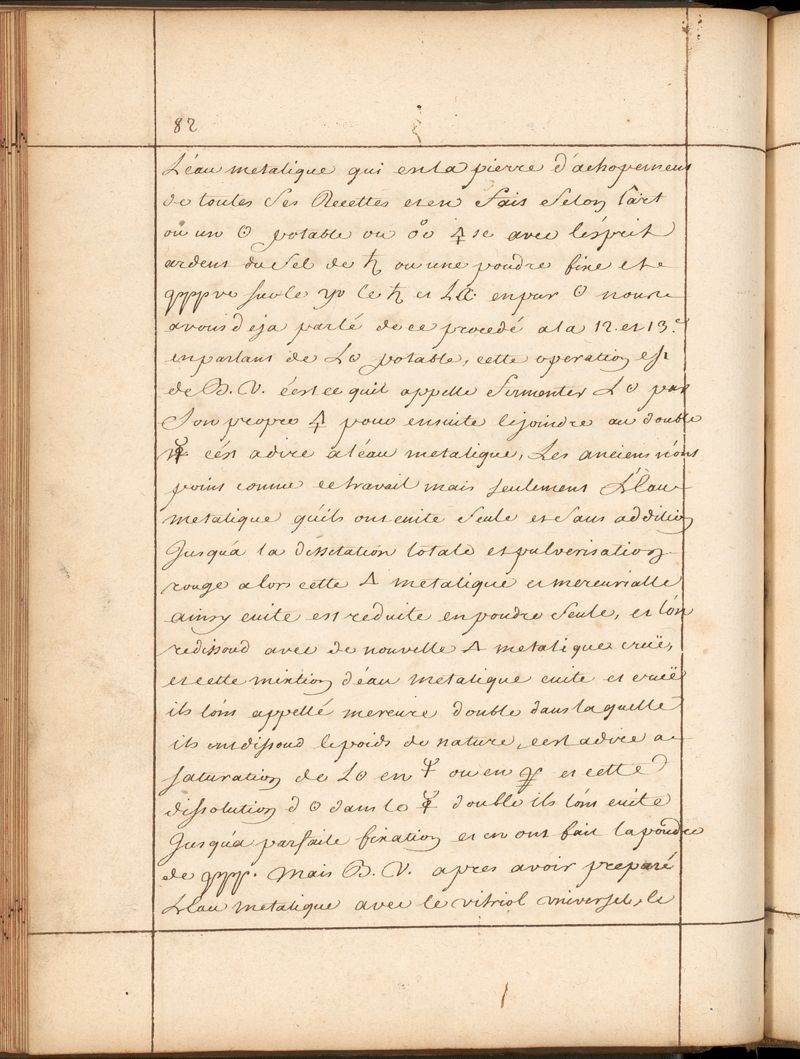 82
L'éau metalique qui est la pierre d'achopement
de toutes Ses Recettes et en Fait Selon l'art
ou un ☉ potable ou 🜍 re avec l'ésprit
ardent du Sel de ♄ ou une poudre fixe et
sur le le ♄ et L☾ en pur ☉ nous
avons deja parlé de ce procedé a la 12. et 13.e
en parlant de L☉ potable, cette operation est
de B. V. c'est ce quil appelle fermenter L☉ par
Son propre 🜍 pour ensuite le joindre au double
☿ c'ést a dire a l'éau metalique, Les anciens n'ont
point connue ce travail mais seulement L'Eau
metalique qu'ils ont cuite Seule et Sans addition
Jusqu'a la dissication totale et pulverisation
rouge alors cette metalique et mercurialle
ainsy cuite est reduite en poudre Seule, et l'on
redissoud avec de nouvelle metalique cruë,
et cette mixtion d'éau metalique cuite et cruë
ils l'ont appellé mercure double dans laquelle
ils ont dissoud le poids de nature, c'est a dire a
saturation de L☉ en ☿ ou en et cette
dissolution d ☉ dans le ☿ double ils l'ont cuite
Jusqu'a parfaite fixation et en ont fait la poudre
de . Mais B. V. apres avoir preparé
L'Eau metalique avec le vitriol universel, le